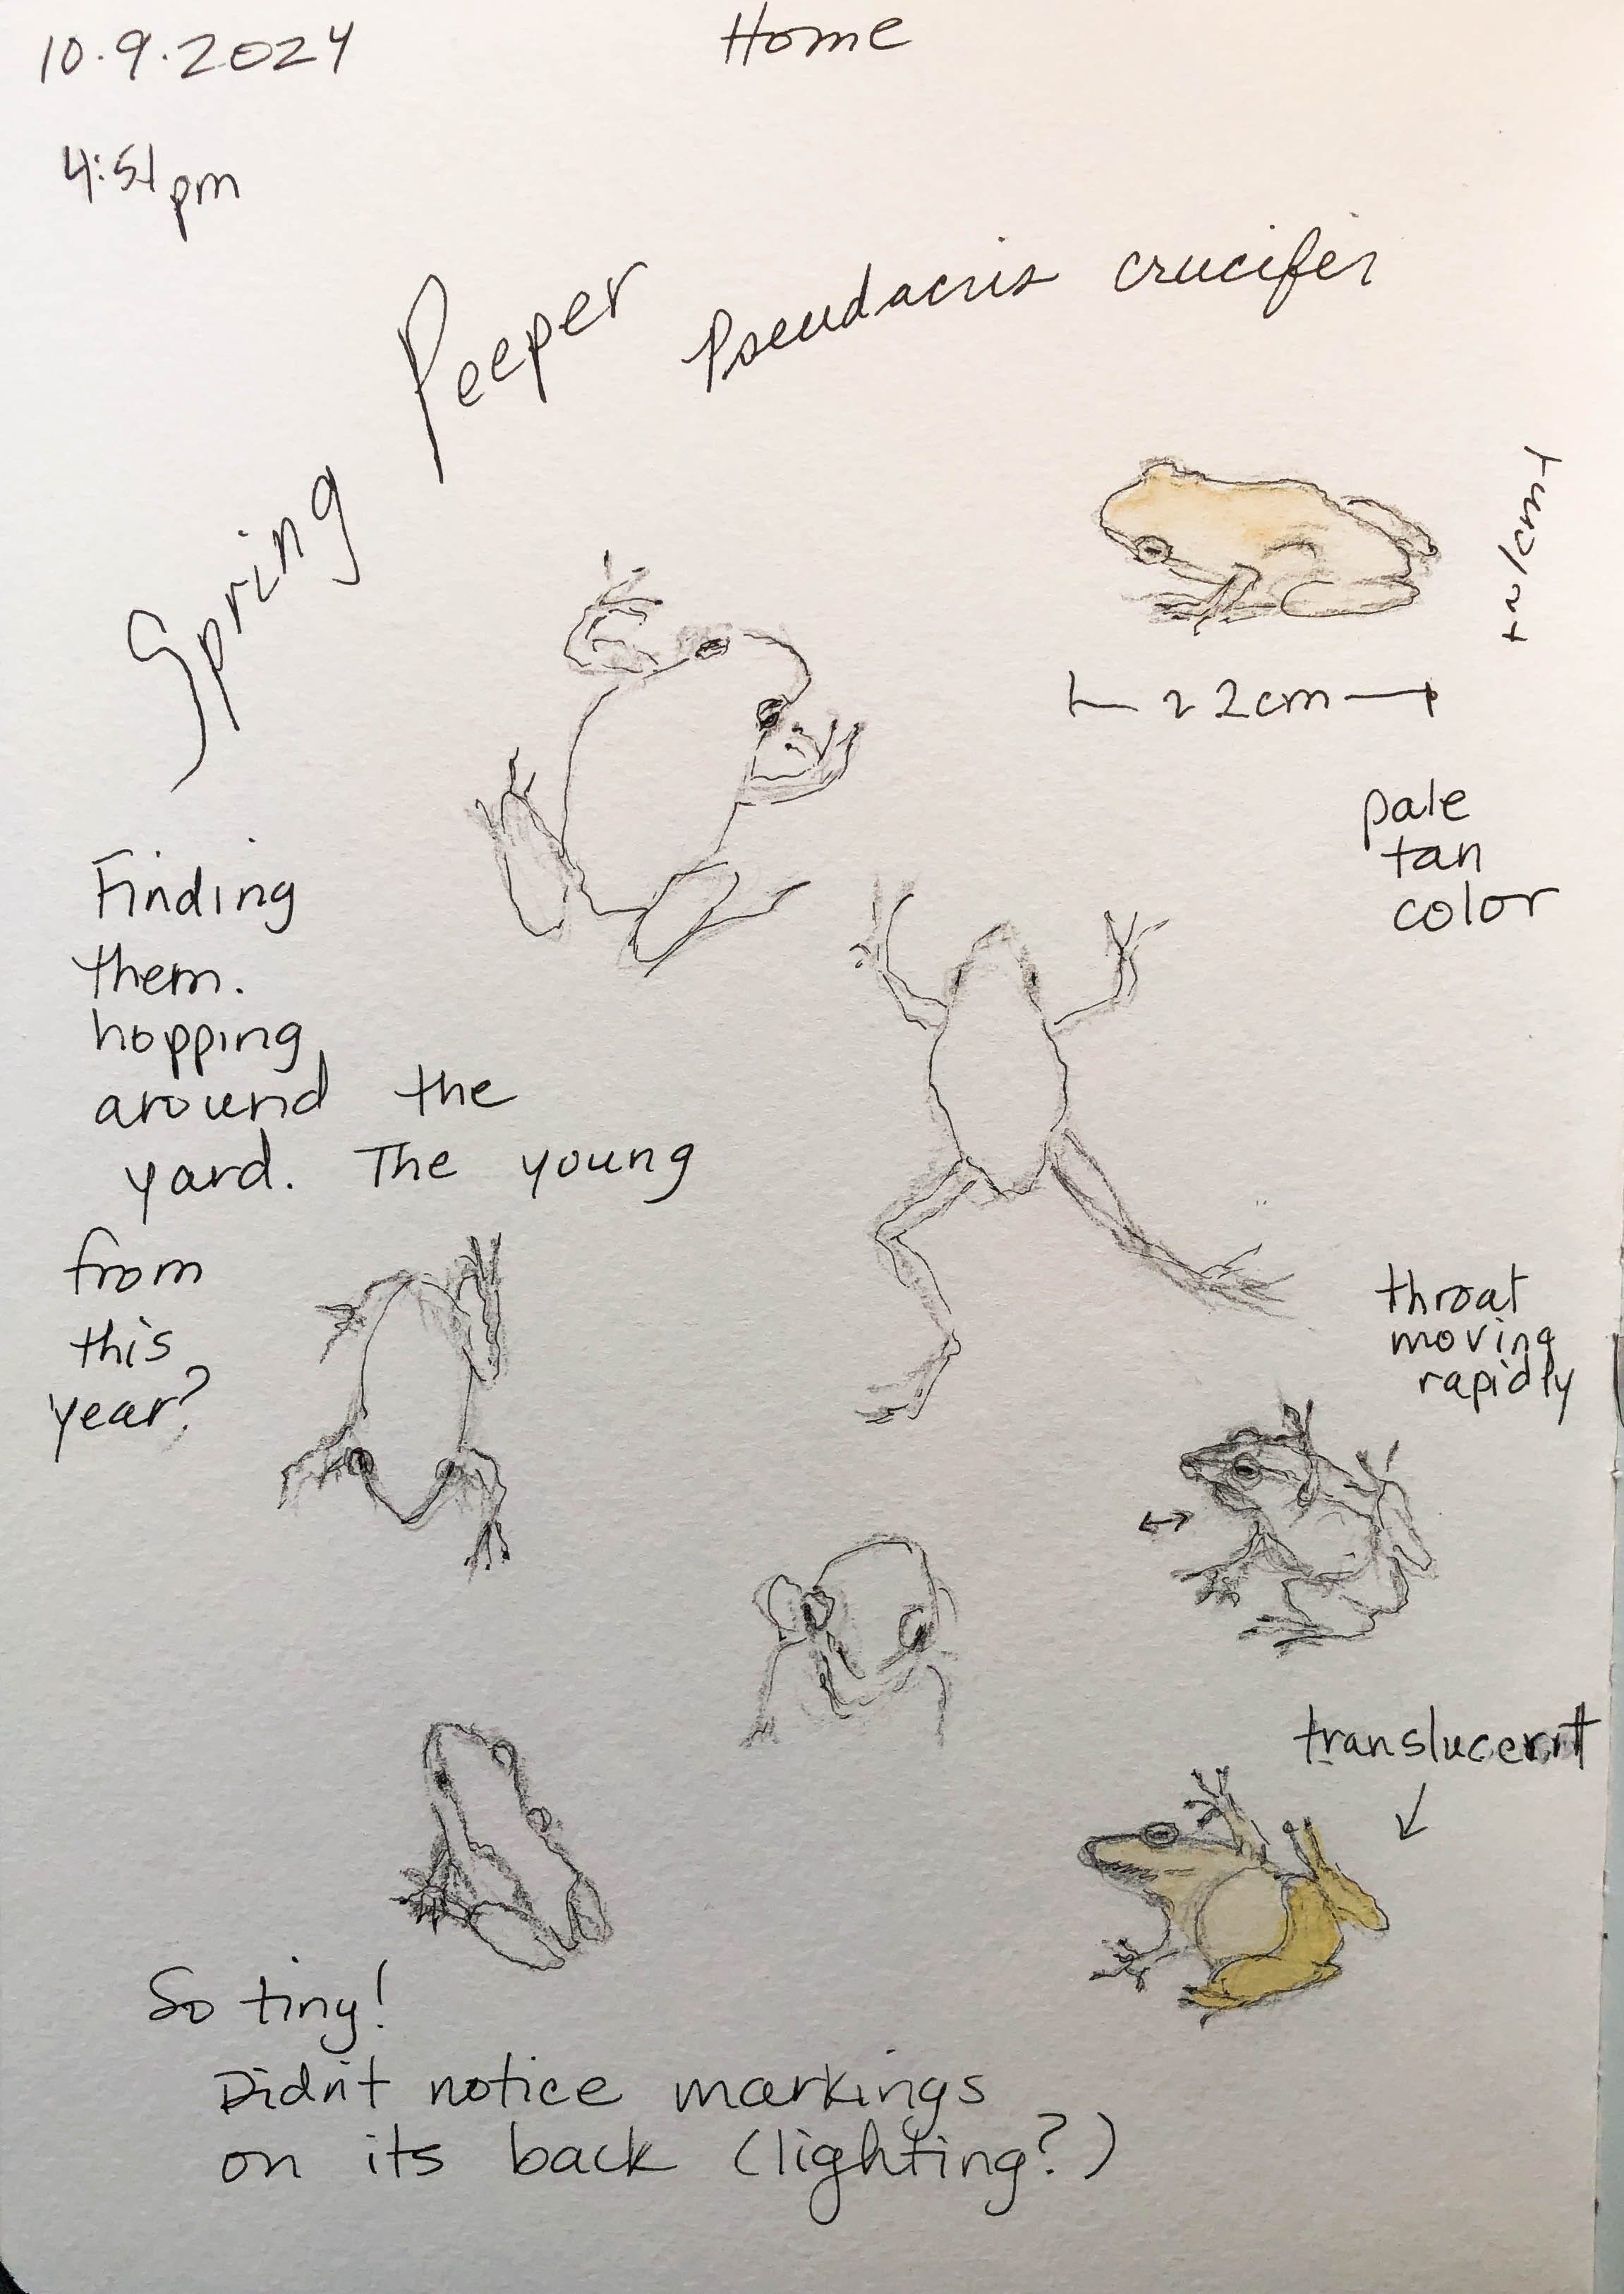 10.9.2024
Home
4:51 pm
Spring Peeper Pseudacris crucifer
~1cm
~2cm
pale
tan
color
Finding
them.
hopping
around the
yard. The young
from
this
year?
throat
moving
rapidly
translucent
So tiny!
Didn't notice markings
on its back (lighting?)